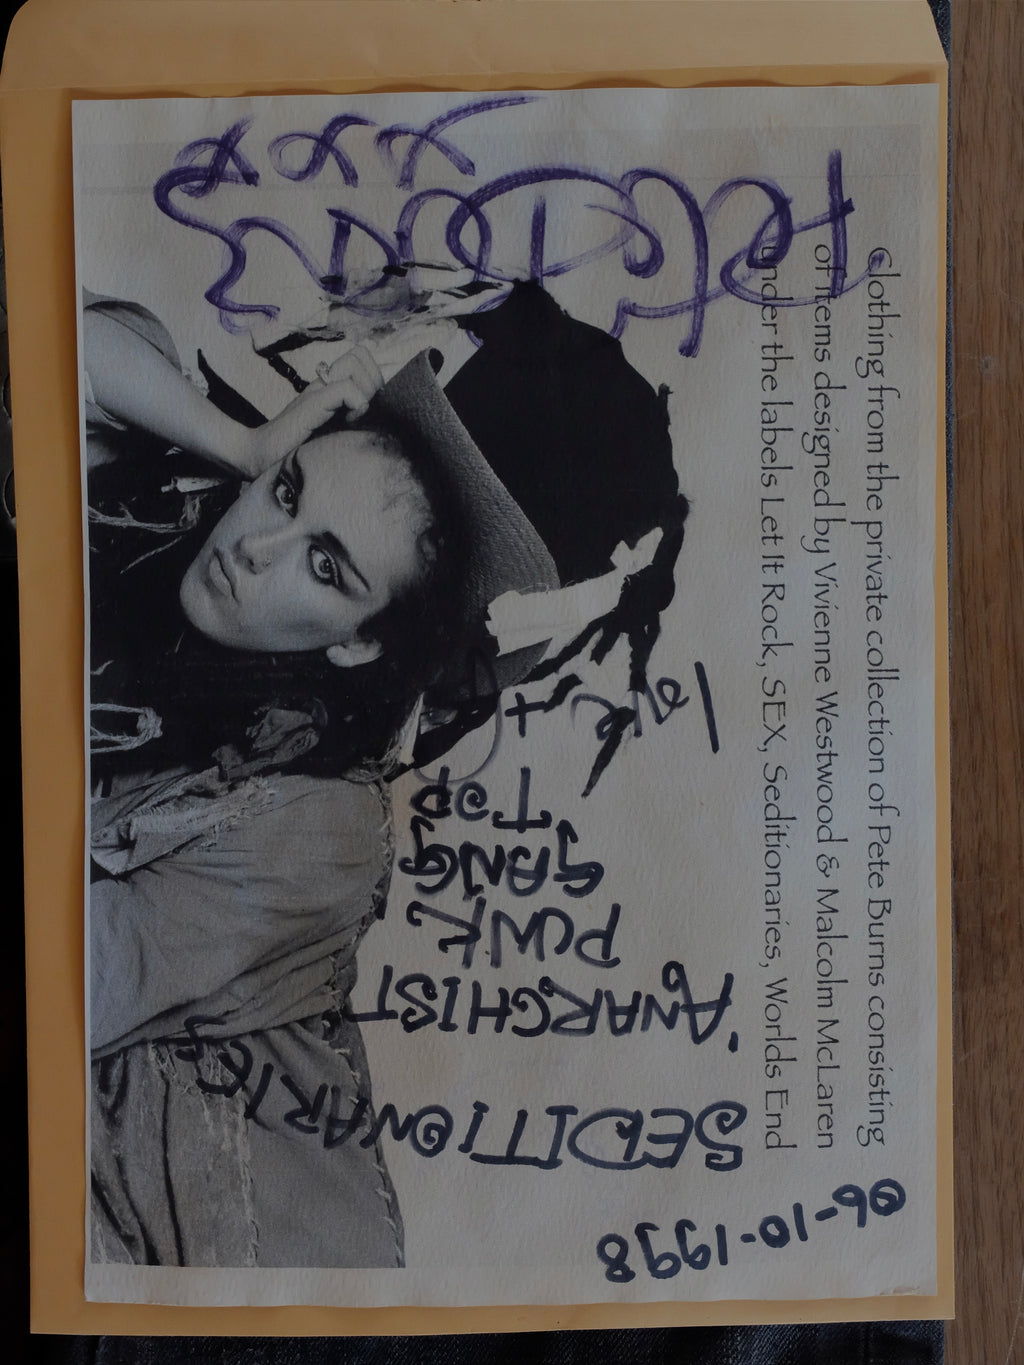 Clothing from the private collection of Pete Burns consisting
of items designed by Vivienne Westwood & Malcolm McLaren
under the labels Let It Rock, SEX, Seditionaries, Worlds End
06-10-1998
SEDITIONARIES
'ANARCHIST
PUNK
GANG
TOP